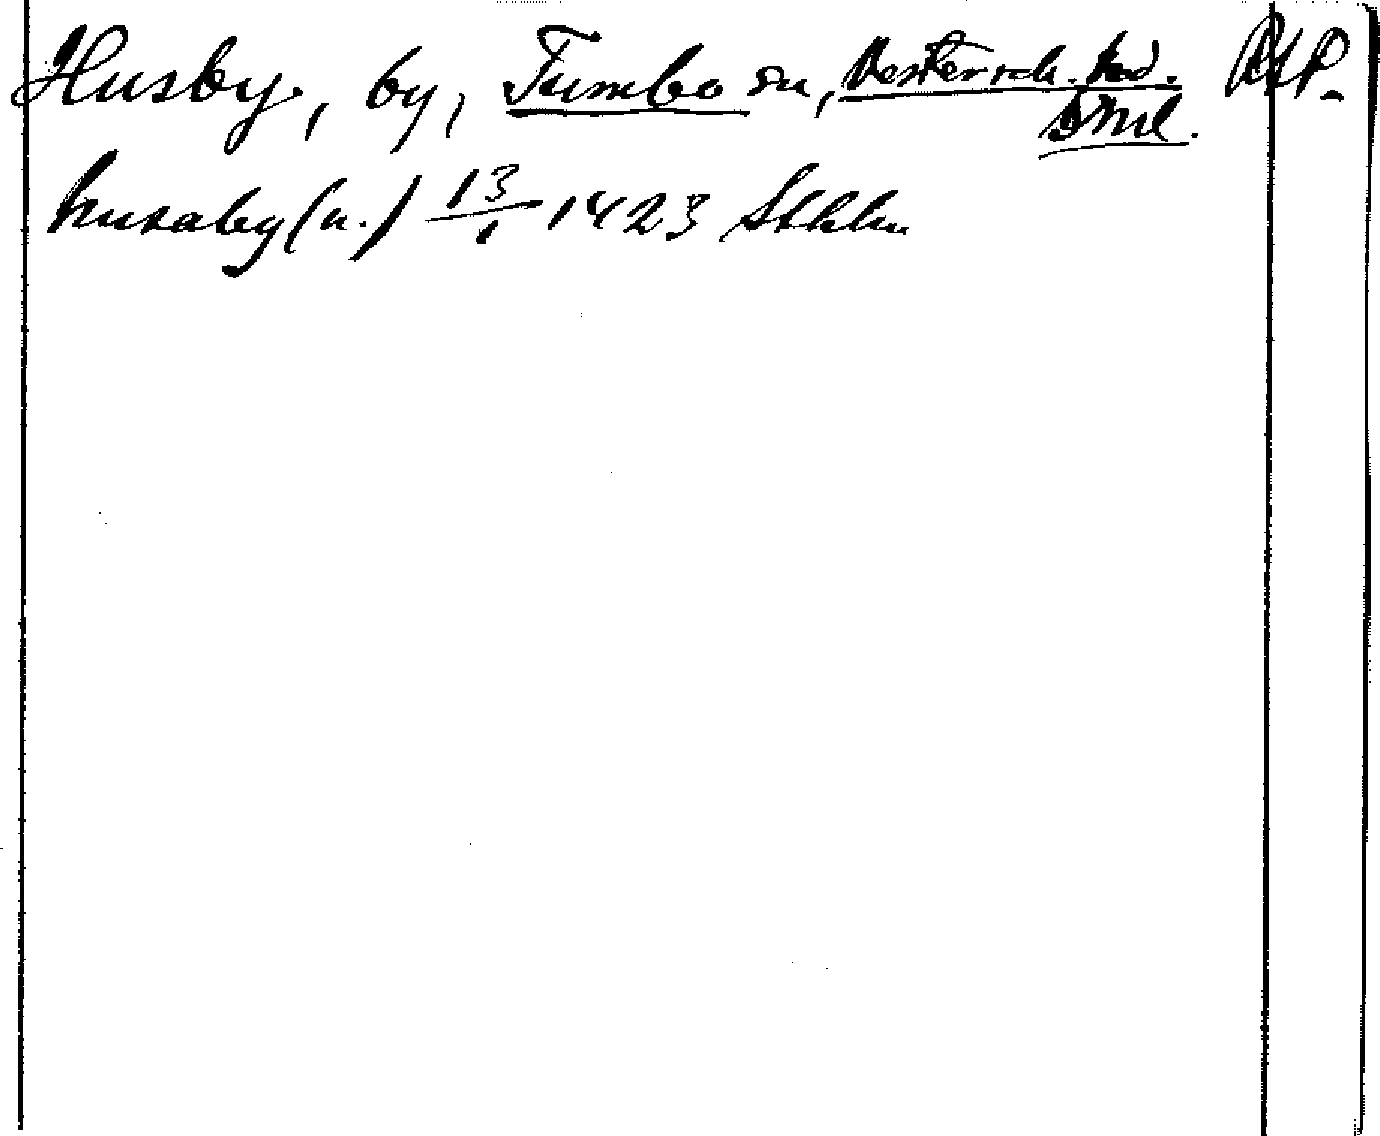 Husby, by, Tumbo sn, Vesterrek. hd. RAP.
Sml.
husaby (u.) 13/1 1423 Sthlm